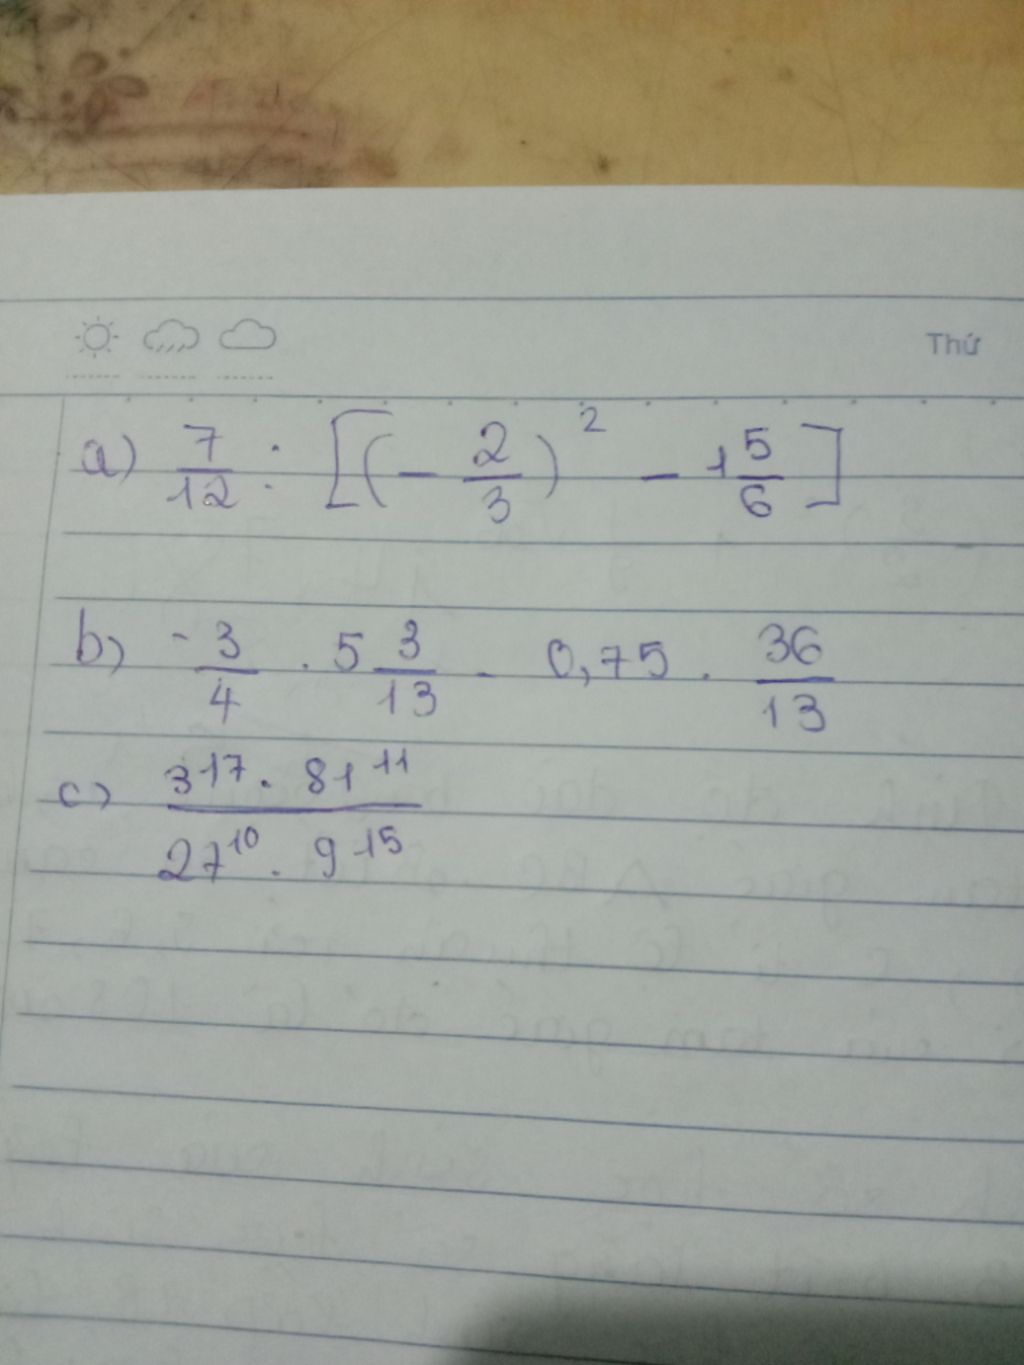 Thứ
a) 7/12 : [(- 2/3)² - 1 5/6]
b) -3/4 . 5 3/13 - 0,75 . 36/13
c) 3¹⁷ . 81¹¹ / 27¹⁰ . 9¹⁵